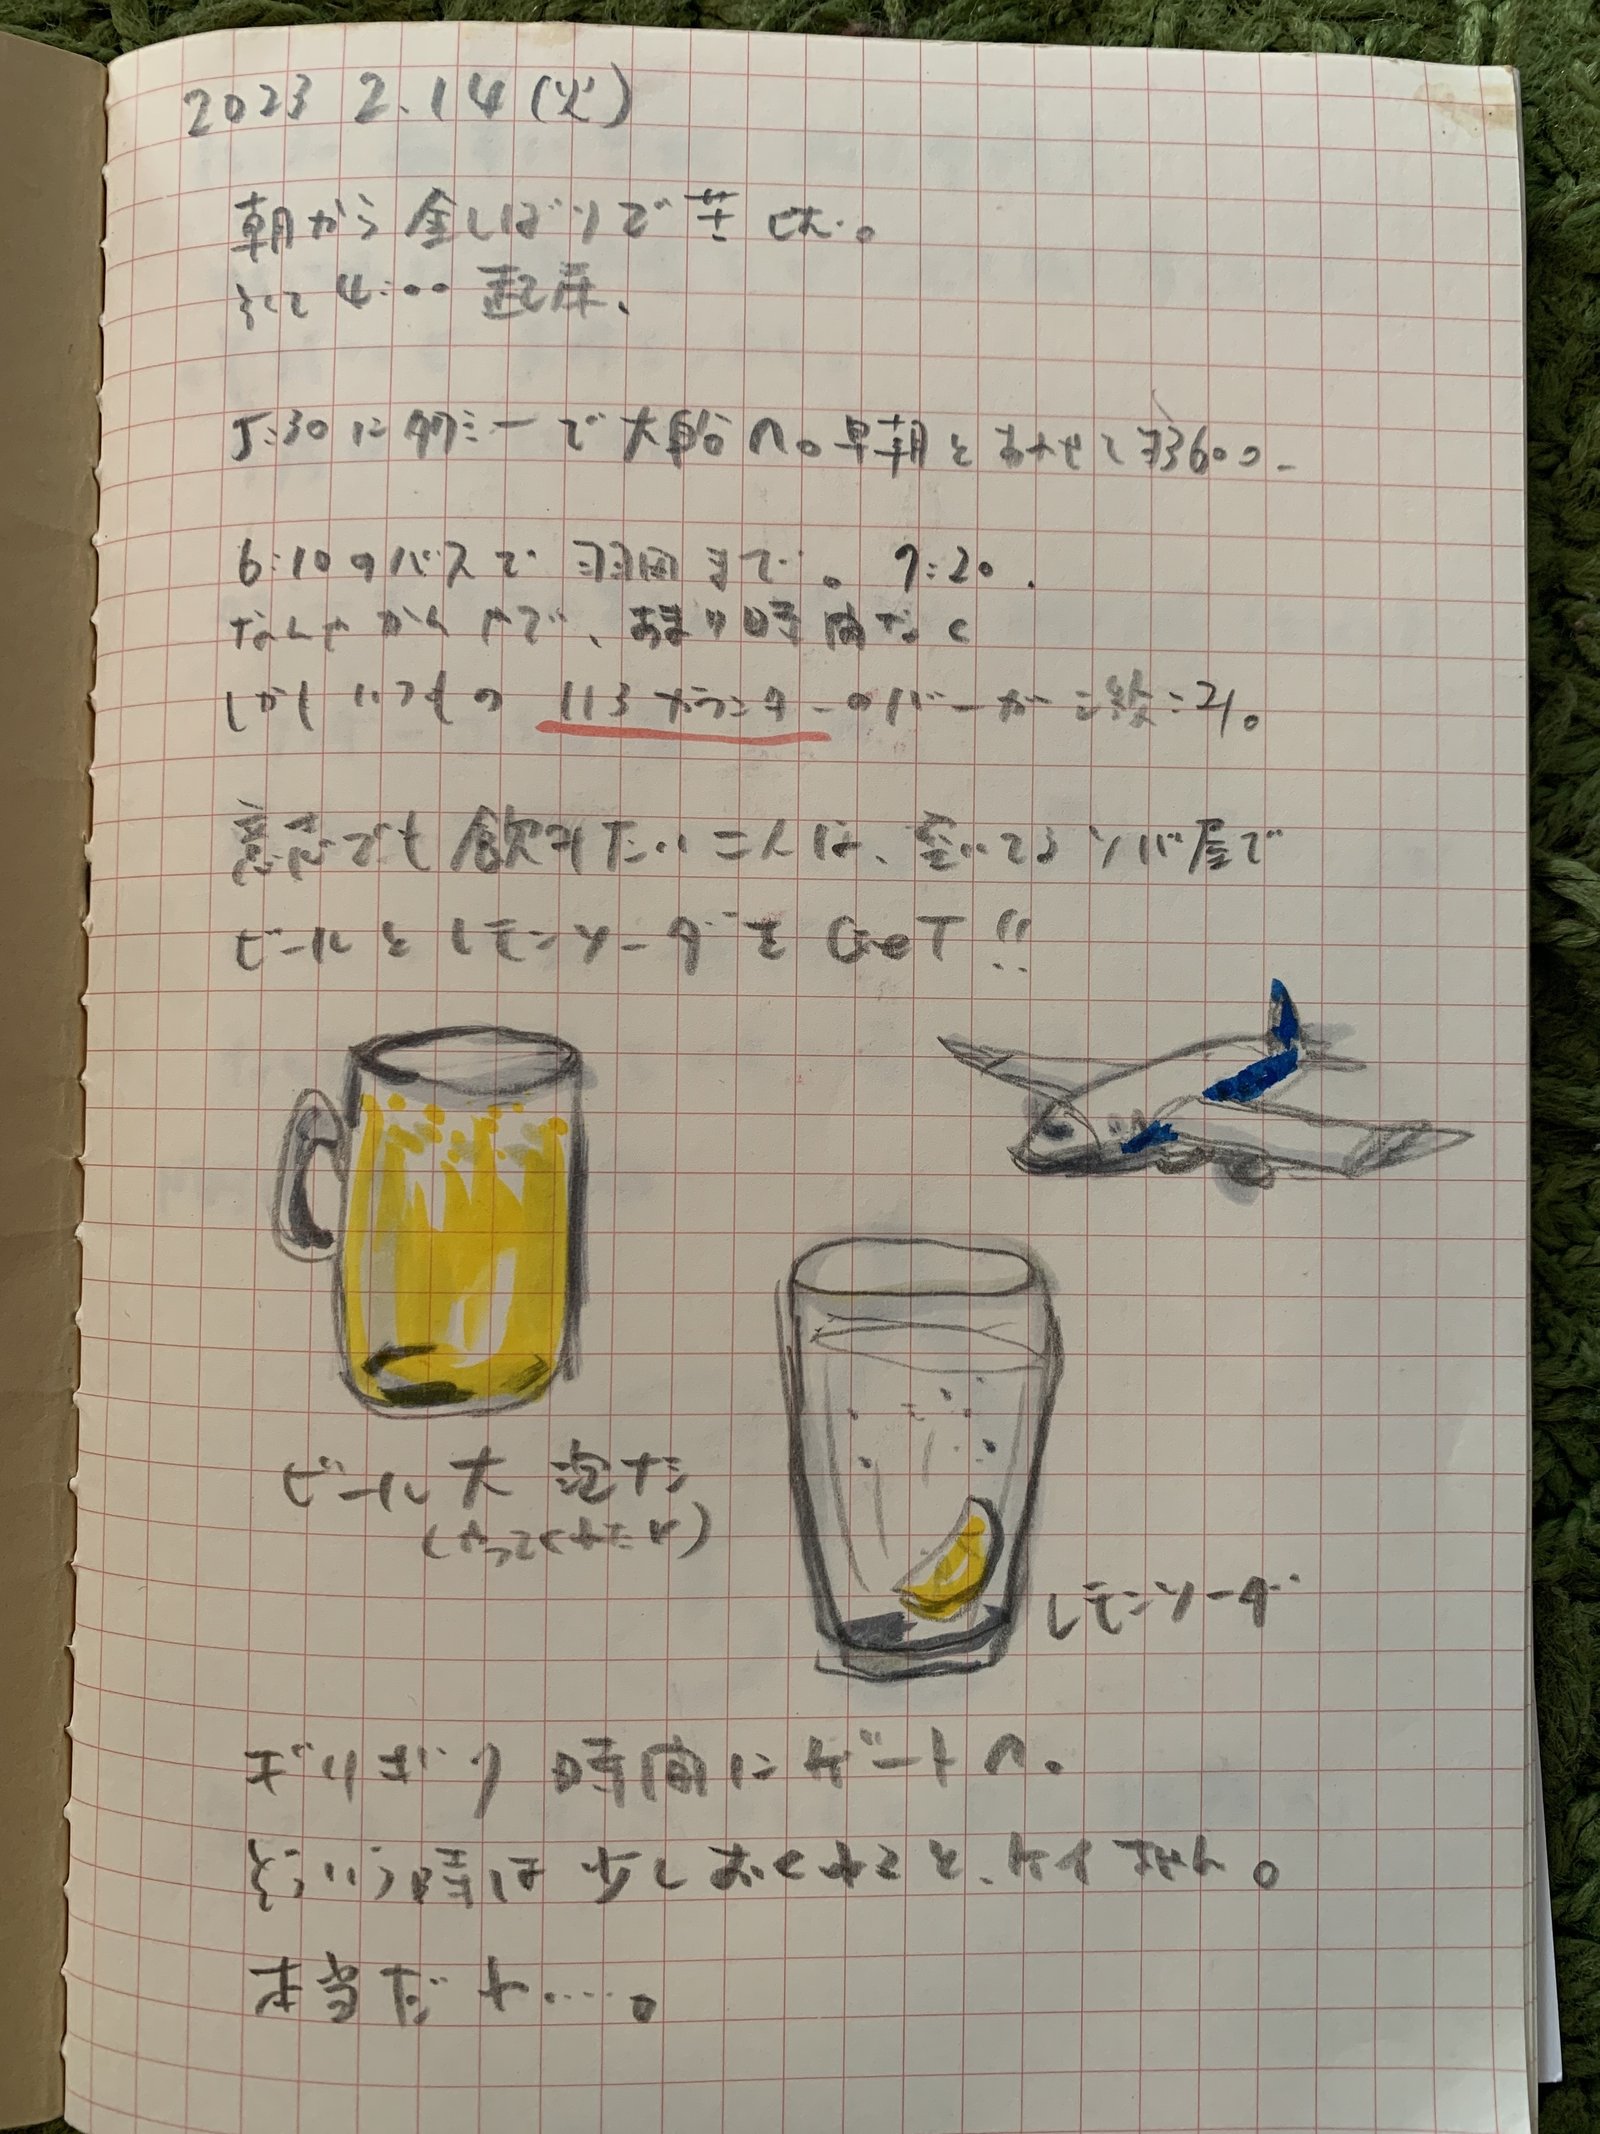 2023 2.14(火)
朝から金しばりで苦しむ。
そして4:00起床、
5:30にタクシーで大船へ。早朝とあわせて¥3600-
6:10のバスで羽田まで。7:20.
なんやかんやで、あまり時間なく
しかもいつもの 113 のバーガーは
意地でも飲みたい二人は、空いてるソバ屋で
ビールとレモンソーダを GeT!!
ビール大 泡ナシ
レモンソーダ
ギリギリ時間にゲートへ。
そういう時は少しおくれると、ケイ
本当だネ……。